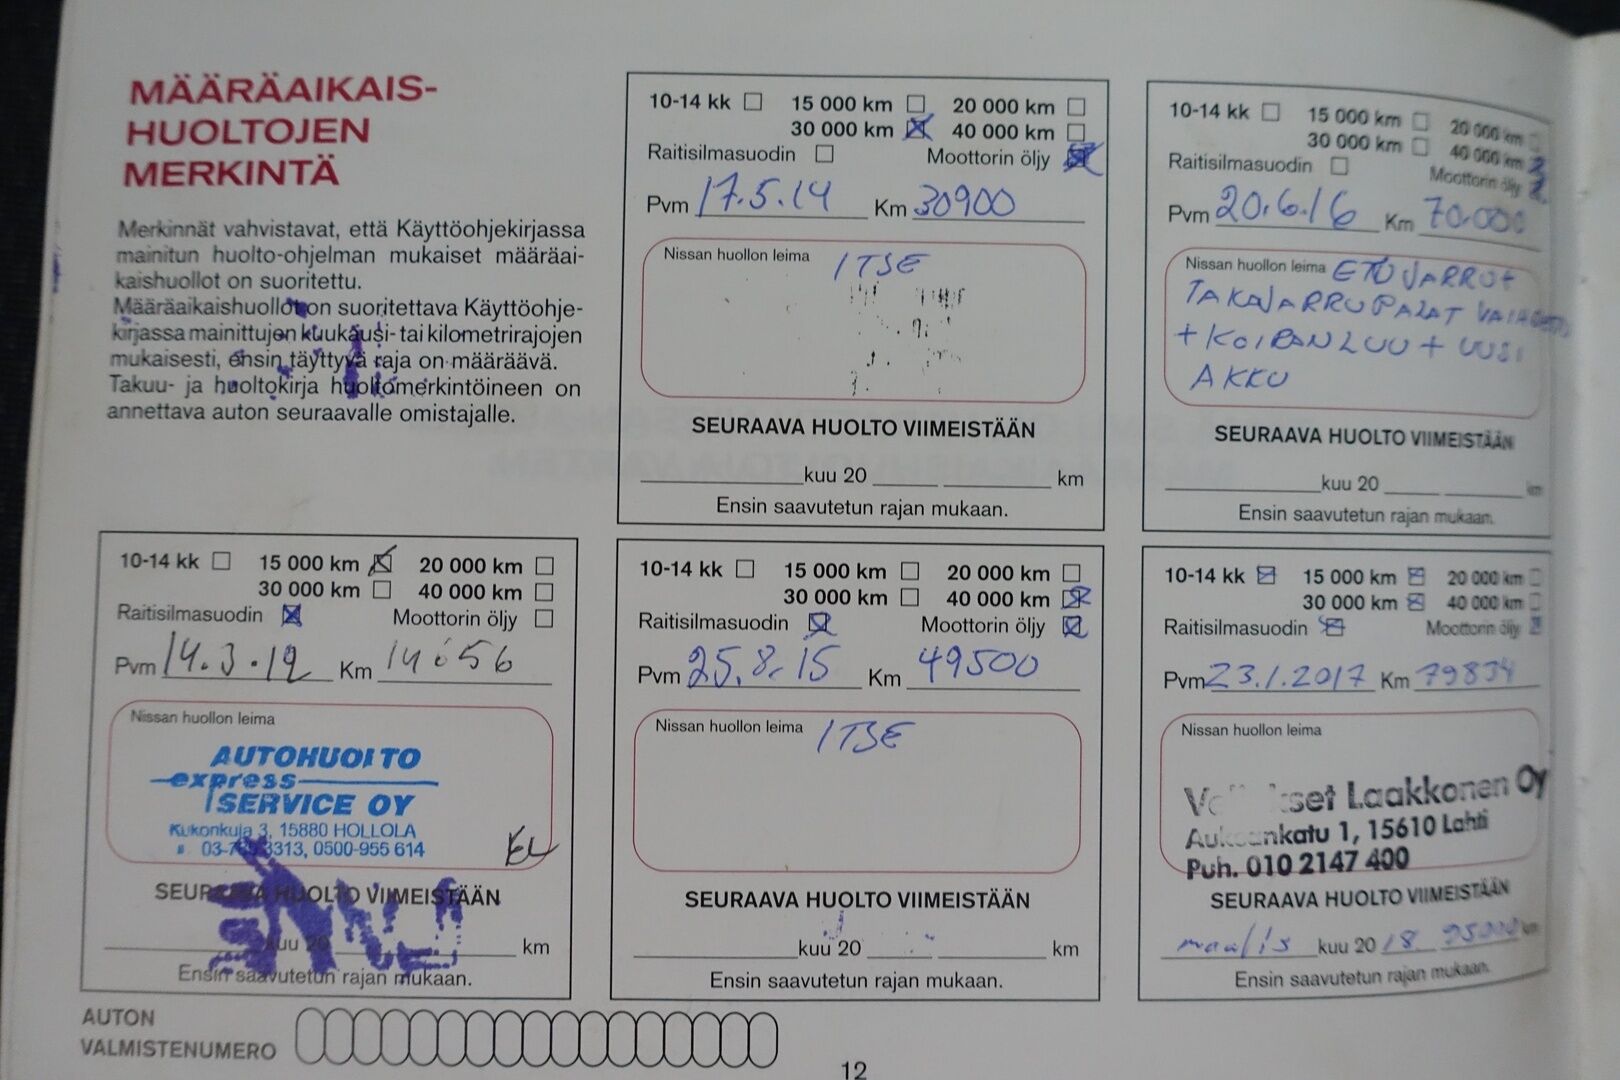 MÄÄRÄAIKAIS-
HUOLTOJEN
MERKINTÄ
Merkinnät vahvistavat, että Käyttöohjekirjassa
mainitun huolto-ohjelman mukaiset määräai-
kaishuollot on suoritettu.
Määräaikaishuollot on suoritettava Käyttöohje-
kirjassa mainittujen kuukausi- tai kilometrirajojen
mukaisesti, ensin täyttyvä raja on määräävä.
Takuu- ja huoltokirja huoltomerkintöineen on
annettava auton seuraavalle omistajalle.
10-14 kk 15 000 km 20 000 km
30 000 km 40 000 km
Raitisilmasuodin Moottorin öljy
Pvm 17.5.14 Km 30900
Nissan huollon leima ITSE
SEURAAVA HUOLTO VIIMEISTÄÄN
kuu 20 km
Ensin saavutetun rajan mukaan.
10-14 kk 15 000 km 20 000 km
30 000 km 40 000 km
Raitisilmasuodin Moottorin öljy
Pvm 20.6.16 Km 70.000
Nissan huollon leima ETUJARRU+
TAKAJARRUPALAT
+ KOIRANLUU + UUSI
AKKU
SEURAAVA HUOLTO VIIMEISTÄÄN
kuu 20 km
Ensin saavutetun rajan mukaan.
10-14 kk 15 000 km 20 000 km
30 000 km 40 000 km
Raitisilmasuodin Moottorin öljy
Pvm 14.3.12 Km 14056
Nissan huollon leima
AUTOHUOLTO
express
SERVICE OY
Kukonkuja 3, 15880 HOLLOLA
3313, 0500-955 614
SEURAAVA HUOLTO VIIMEISTÄÄN
kuu 20 km
Ensin saavutetun rajan mukaan.
10-14 kk 15 000 km 20 000 km
30 000 km 40 000 km
Raitisilmasuodin Moottorin öljy
Pvm 25.8.15 Km 49500
Nissan huollon leima ITSE
SEURAAVA HUOLTO VIIMEISTÄÄN
kuu 20 km
Ensin saavutetun rajan mukaan.
10-14 kk 15 000 km 20 000 km
30 000 km 40 000 km
Raitisilmasuodin Moottorin öljy
Pvm 23.1.2017 Km 79834
Nissan huollon leima
Laakkonen Oy
1, 15610 Lahti
Puh. 010 2147 400
SEURAAVA HUOLTO VIIMEISTÄÄN
maalis kuu 20 18 95000 km
Ensin saavutetun rajan mukaan.
AUTON
VALMISTENUMERO
12